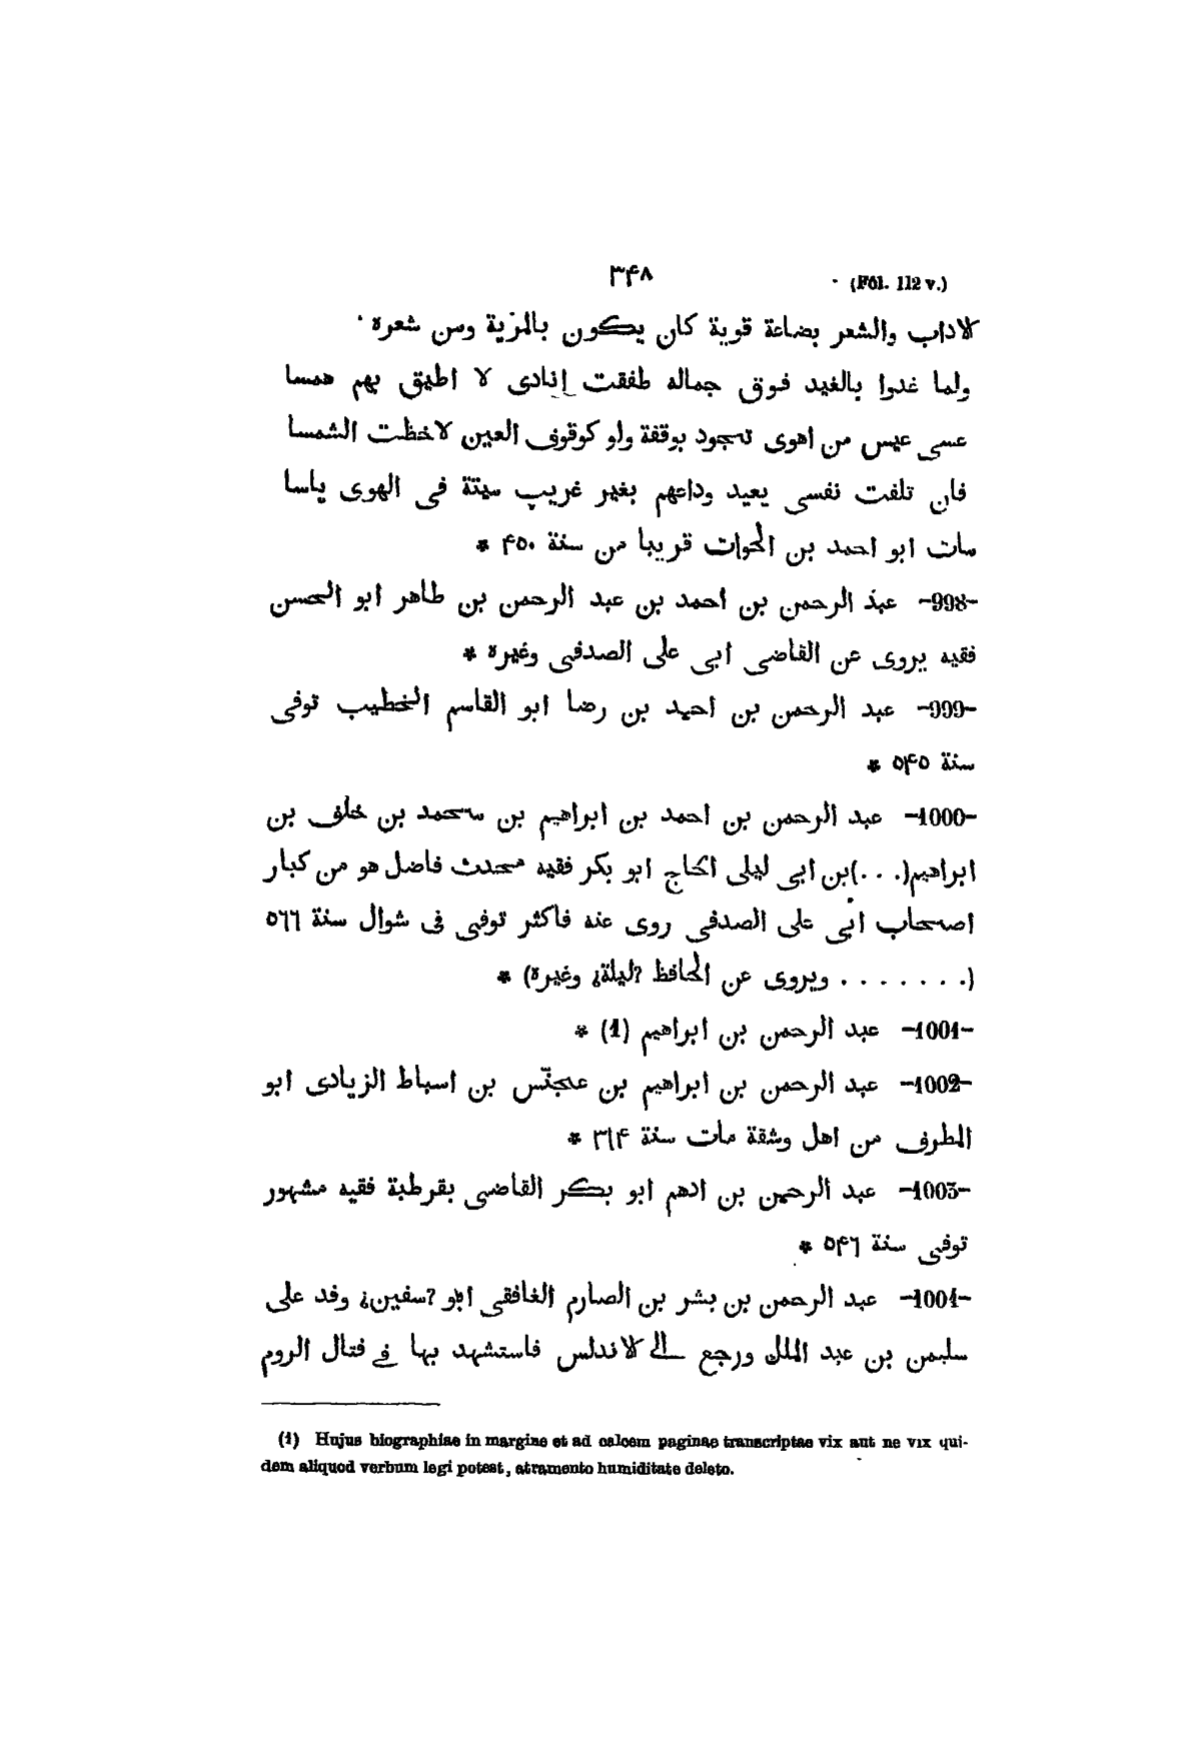 (Fol. 112 v.) ۳۴۸
الاداب والشعر بضاعة قوية كان يكون بالمزية ومن شعرة
ولما غدوا بالغيد فوق جماله طفقت انادى لا اطيق بهم همسا
عسى عيس من اهوى تجود بوقفة ولو كوقوف العين لاحظت الشمسا
فان تلفت نفسى بعيد وداعهم بغير غريب ميتة فى الهوى ياسا
مات ابو احمد بن الحوات قريبا من سنة ۴۵۰ *
-998- عبد الرحمن بن احمد بن عبد الرحمن بن طاهر ابو الحسن
فقيه يروى عن القاضى ابى على الصدفى وغيرة *
-999- عبد الرحمن بن احمد بن رضا ابو القاسم الخطيب توفى
سنة ۵۴۵ *
-1000- عبد الرحمن بن احمد بن ابراهيم بن محمد بن خلف بن
ابراهيم(. . .)بن ابى ليلى الحاج ابو بكر فقيه محدث فاضل هو من كبار
اصحاب ابى على الصدفى روى عنه فاكثر توفى فى شوال سنة ۵٦٦
(. . . . . . . ويروى عن الحافظ ?ليلة¿ وغيرة) *
-1001- عبد الرحمن بن ابراهيم (1) *
-1002- عبد الرحمن بن ابراهيم بن عجنّس بن اسباط الزيادى ابو
المطرف من اهل وشقة مات سنة ۳۱۴ *
-1003- عبد الرحمن بن ادهم ابو بكر القاضى بقرطبة فقيه مشهور
توفى سنة ۵۴٦ *
-1004- عبد الرحمن بن بشر بن الصارم الغافقى ابو ?سفين¿ وفد على
سليمن بن عبد الملك ورجع الى الاندلس فاستشهد بها فى قتال الروم
(1) Hujus biographiae in margine et ad calcem paginae transcriptae vix aut ne vix qui-
dem aliquod verbum legi potest, atramento humiditate deleto.